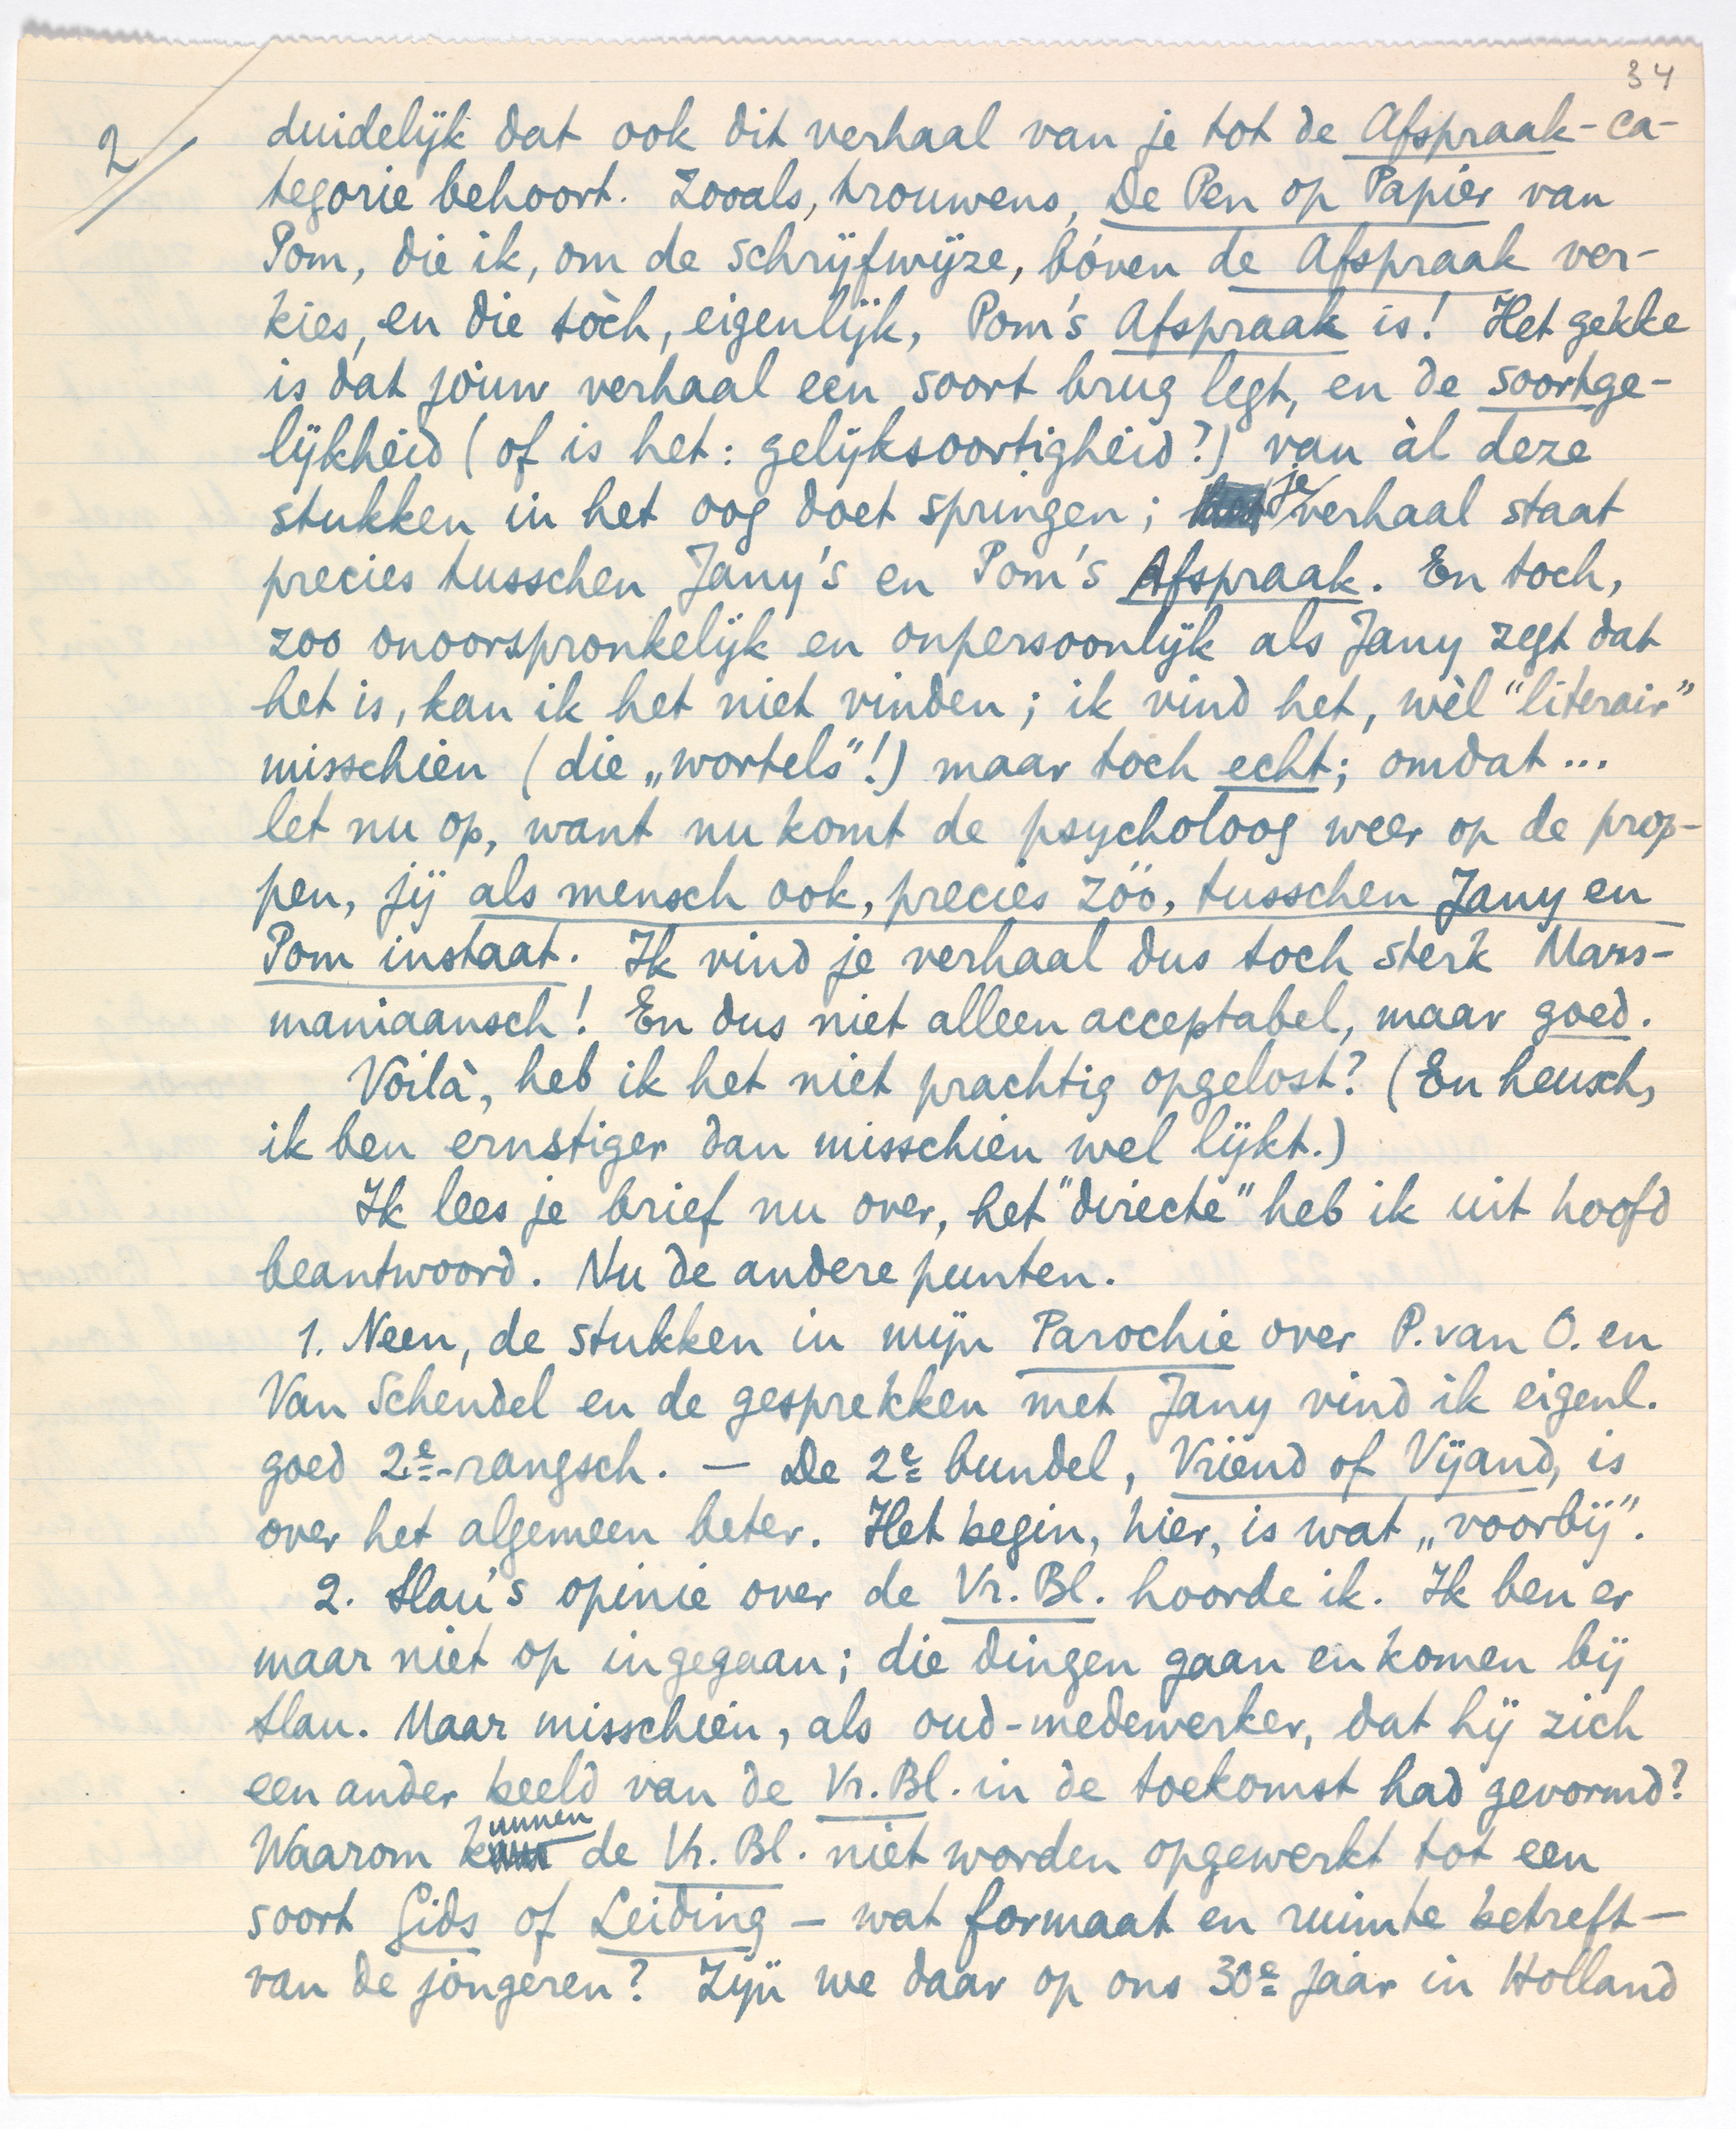 34
2/
duidelijk dat ook dit verhaal van je tot de Afspraak-ca-
tegorie behoort. Zooals, trouwens, De Pen op Papier van
Pom, die ik, om de schrijfwijze, bóven de Afspraak ver-
kies, en die tòch, eigenlijk, Pom's Afspraak is! Het gekke
is dat jóuw verhaal een soort brug legt, en de soortge-
lijkheid (of is het: gelijksoortigheid?) van àl deze
stukken in het oog doet springen; je verhaal staat
precies tusschen Jany's en Pom's Afspraak. En toch,
zoo onoorspronkelijk en onpersoonlijk als Jany zegt dat
het is, kan ik het niet vinden; ik vind het, wèl "literair"
misschien (die „wortels"!) maar toch echt; omdat ...
let nu op, want nu komt de psycholoog weer op de prop-
pen, jij als mensch ook, precies zóó, tusschen Jany en
Pom instaat. Ik vind je verhaal dus toch sterk Mars-
maniaansch! En dus niet alleen acceptabel, maar goed.
Voilà, heb ik het niet prachtig opgelost? (En heusch,
ik ben ernstiger dan misschien wel lijkt.)
Ik lees je brief nu over, het "directe" heb ik uit hoofd
beantwoord. Nu de andere punten.
1. Neen, de stukken in mijn Parochie over P. van O. en
Van Schendel en de gesprekken met Jany vind ik eigenl.
goed 2e-rangsch. — De 2e bundel, Vriend of Vijand, is
over het algemeen beter. Het begin, hier, is wat „voorbij".
2. Slau's opinie over de Vr. Bl. hoorde ik. Ik ben er
maar niet op ingegaan; die dingen gaan en komen bij
Slau. Maar misschien, als oud-medewerker, dat hij zich
een ander beeld van de Vr. Bl. in de toekomst had gevormd?
Waarom kunnen de Vr. Bl. niet worden opgewerkt tot een
soort Gids of Leiding — wat formaat en ruimte betreft —
van de jongeren? Zijn we daar op ons 30e jaar in Holland